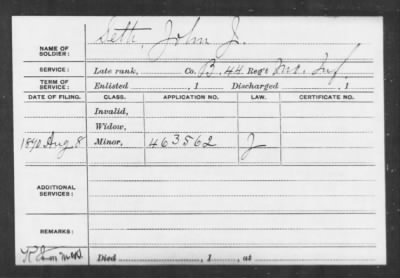 NAME OF SOLDIER: Seth, John J.
SERVICE: Late rank, Co. B. 44 Reg't Mo. Inf.
TERM OF SERVICE: Enlisted , 1 Discharged , 1
DATE OF FILING. CLASS. APPLICATION NO. LAW. CERTIFICATE NO.
Invalid,
Widow,
1890 Aug 8 Minor, 463562 J
ADDITIONAL SERVICES:
REMARKS:
Died , 1 , at